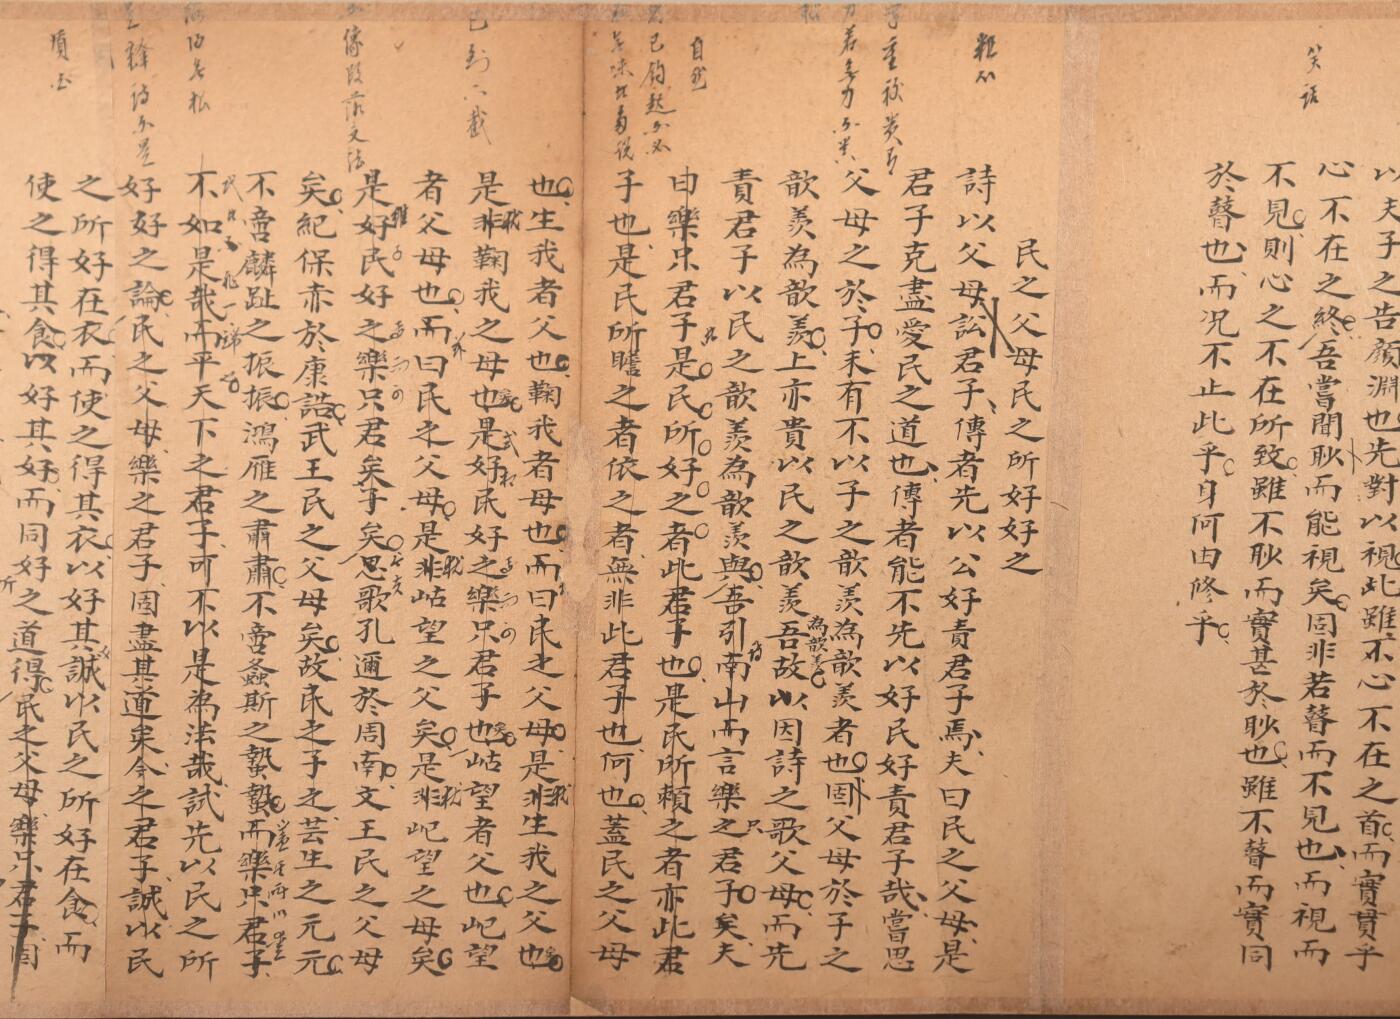 以夫子之告顏淵也先對以視此雖不心不在之首而實貫乎
心不在之終吾嘗聞眇而能視矣固非若瞽而不見也而視而
不見則心之不在所致雖不眇而實甚於眇也雖不瞽而實同
於瞽也而况不止此乎身何由修乎
民之父母民之所好好之
詩以父母訟君子傳者先以公好責君子焉夫曰民之父母是
君子克盡愛民之道也傳者能不先以好民好責君子哉嘗思
父母之於子未有不以子之歆羡為歆羡者也固父母於子之
歆羡為歆羡上亦貴以民之歆羡為歆羡吾故以因詩之歌父母而先
責君子以民之歆羡為歆羡與吾引南山而言樂之君子矣夫
由樂只君子是民所好之者此君子也是民所賴之者亦此君
子也是民所瞻之者依之者無非此君子也何也蓋民之父母
也生我者父也鞠我者母也而曰民之父母是非生我之父也
是非鞠我之母也是好民好之樂只君子也岵望者父也屺望
者父母也而曰民之父母是非岵望之父矣是非屺望之母矣
是好民好之樂只君矣子矣思歌孔邇於周南文王民之父母
矣紀保赤於康誥武王民之父母矣故民之子之芸生之元元
不啻麟趾之振振鴻雁之肅肅不啻螽斯之蟄蟄而樂只君子
不如是哉而平天下之君子可不以是為法哉試先以民之所
好好之論民之父母樂之君子固盡其道矣今之君子誠以民
之所好在衣而使之得其衣以好其誠以民之所好在食而
使之得其食以好其好而同好之道得民之父母樂只君子固
笑話
粗心
自然